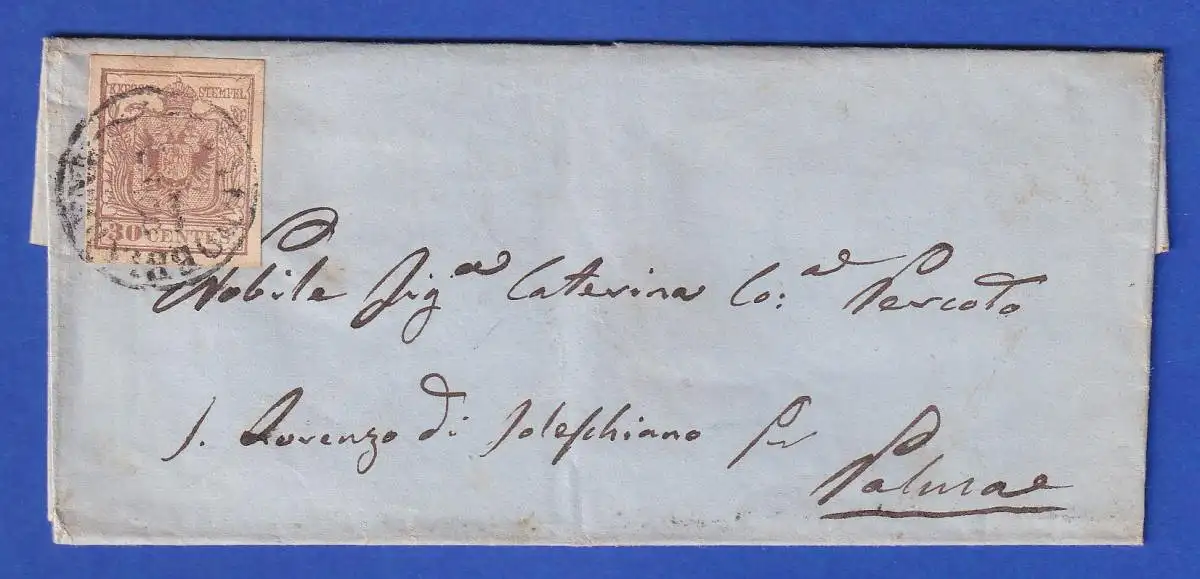 STEMPEL
30 CENTES
Nobile Sig.a Caterina Co:a Percoto
S. Lorenzo di Soleschiano per
Palma